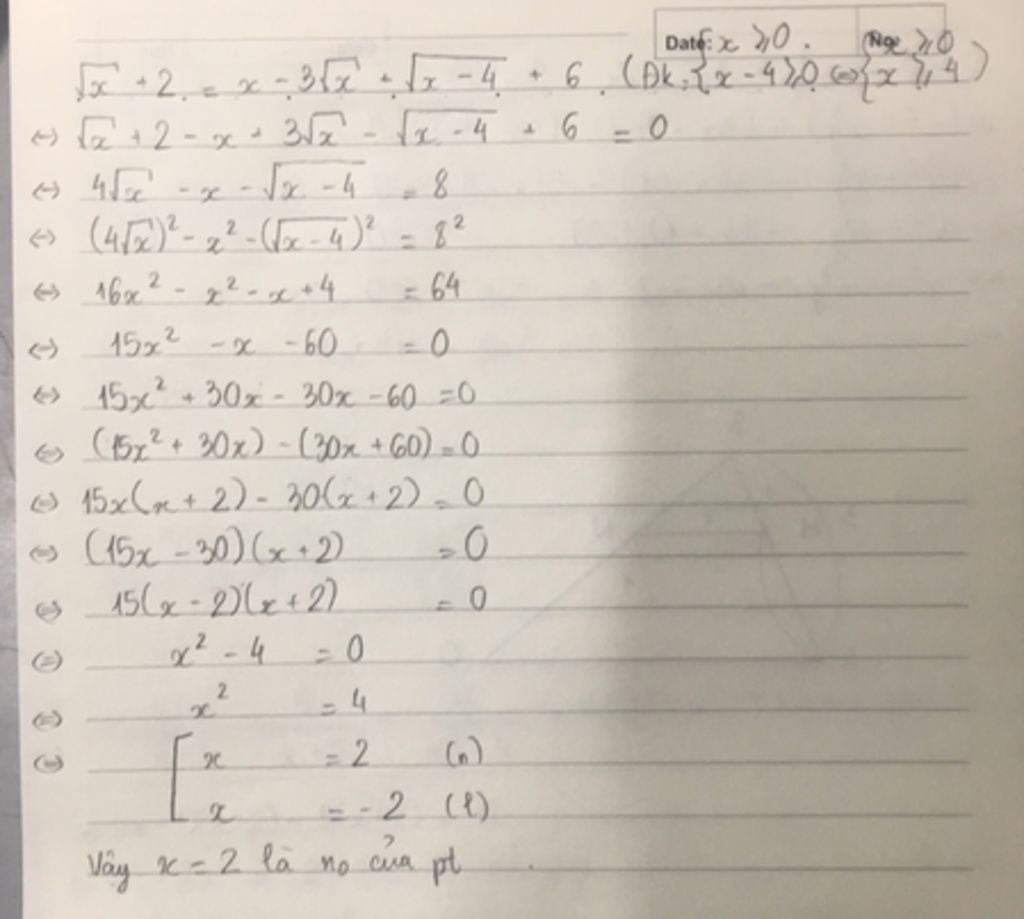 Date: x ⩾ 0. No: x ⩾ 0
√x + 2 = x - 3√x + √(x - 4) + 6 (Đk: {x - 4 ⩾ 0 ⇔ {x ⩾ 4)
⇔ √x + 2 - x + 3√x - √(x - 4) + 6 = 0
⇔ 4√x - x - √(x - 4) = 8
⇔ (4√x)² - x² - (√(x - 4))² = 8²
⇔ 16x² - x² - x + 4 = 64
⇔ 15x² - x - 60 = 0
⇔ 15x² + 30x - 30x - 60 = 0
⇔ (15x² + 30x) - (30x + 60) = 0
⇔ 15x(x + 2) - 30(x + 2) = 0
⇔ (15x - 30)(x + 2) = 0
⇔ 15(x - 2)(x + 2) = 0
⇔ x² - 4 = 0
⇔ x² = 4
⇔ [ x = 2 (n)
x = -2 (l)
Vậy x = 2 là no của pt